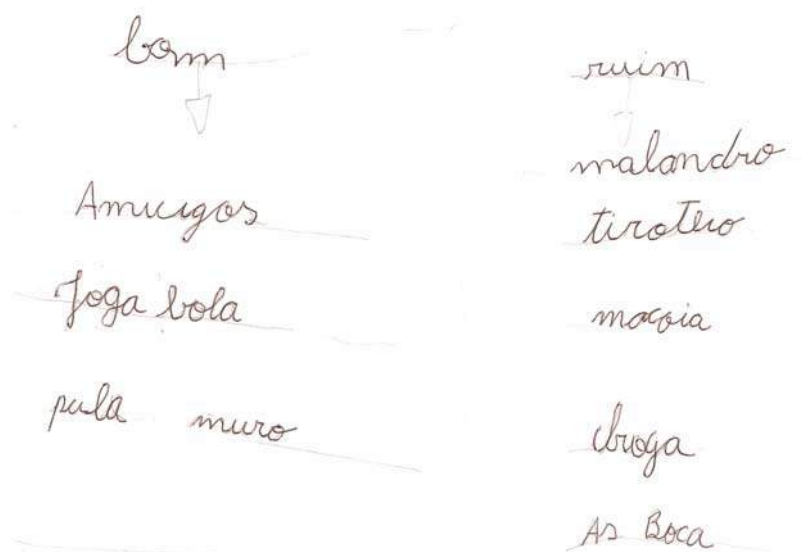 bom
Amucigos
Joga bola
pula muro
ruim
malandro
tiroteio
droga
As Boca